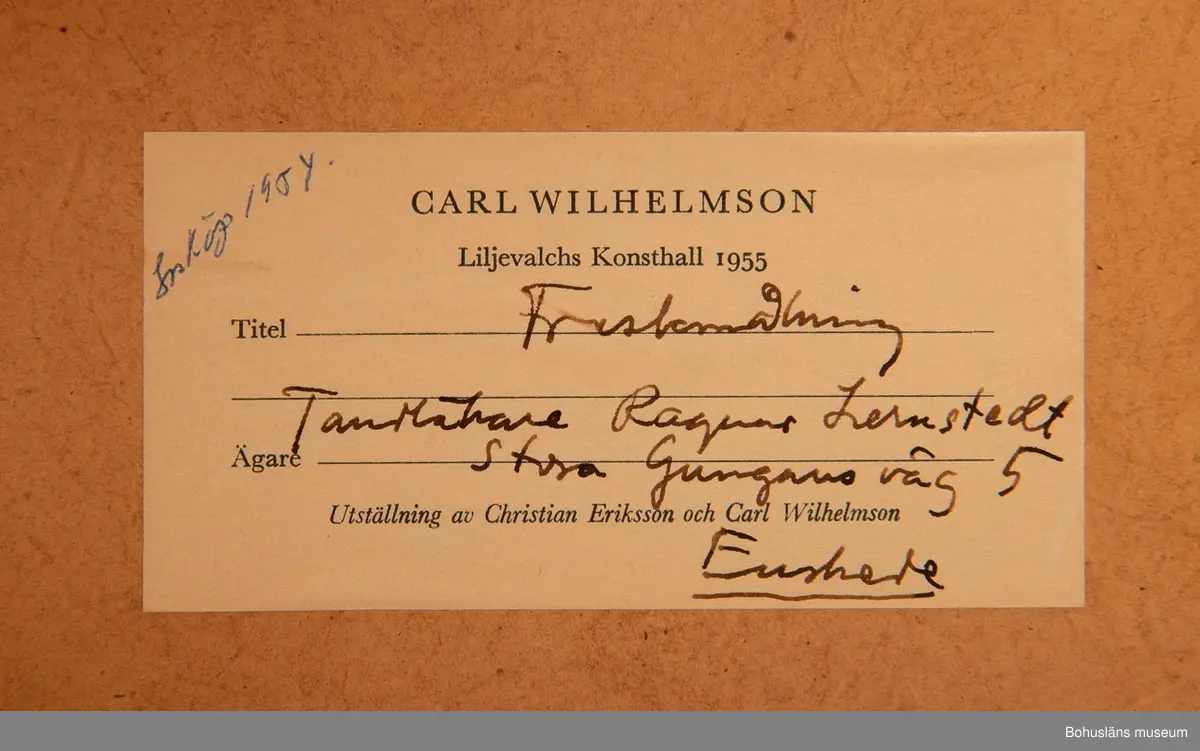 Inköp 1954.
CARL WILHELMSON
Liljevalchs Konsthall 1955
Titel Fruskmålning
Tandläkare Ragnar Lernstedt
Ägare Stora Gungans väg 5
Utställning av Christian Eriksson och Carl Wilhelmson
Enskede
Bohusläns museum